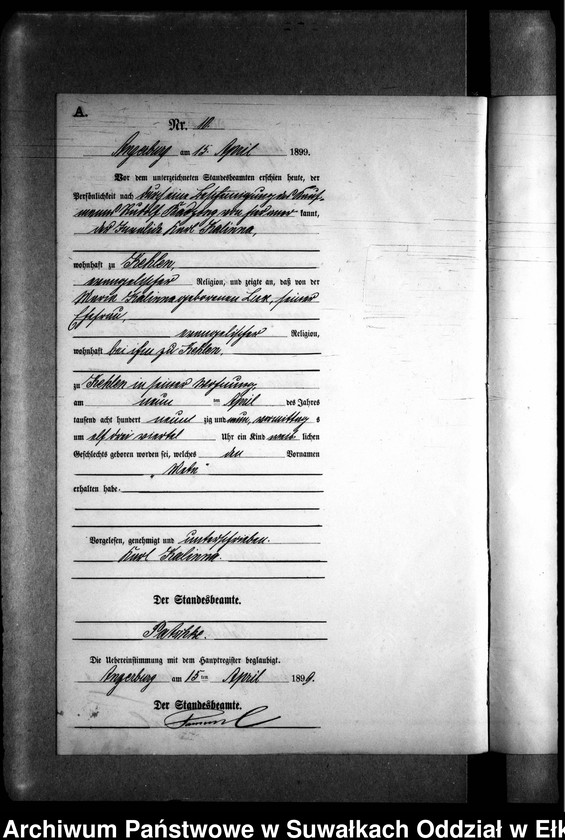 A.
Nr. 10.
Angerburg am 15 April 1899.
Vor dem unterzeichneten Standesbeamten erschien heute, der
Persönlichkeit nach durch eine Bescheinigung des
Rudolf kannt,
der Invalide Karl Kalinna,
wohnhaft zu Kehlen,
evangelischer Religion, und zeigte an, daß von der
Maria Kalinna geborenen Lux, seiner
Ehefrau,
evangelischer Religion,
wohnhaft bei ihm zu Kehlen,
zu Kehlen in seiner Wohnung
am neun ten April des Jahres
tausend acht hundert neun zig und neun, vormittag s
um elf drei viertel Uhr ein Kind weib lichen
Geschlechts geboren worden sei, welches den Vornamen
„Meta“
erhalten habe.
Vorgelesen, genehmigt und unterschrieben.
Karl Kalinna.
Der Standesbeamte.
Die Uebereinstimmung mit dem Hauptregister beglaubigt.
Angerburg am 15 ten April 1899.
Der Standesbeamte.
Archiwum Państwowe w Suwałkach Oddział w Ełk